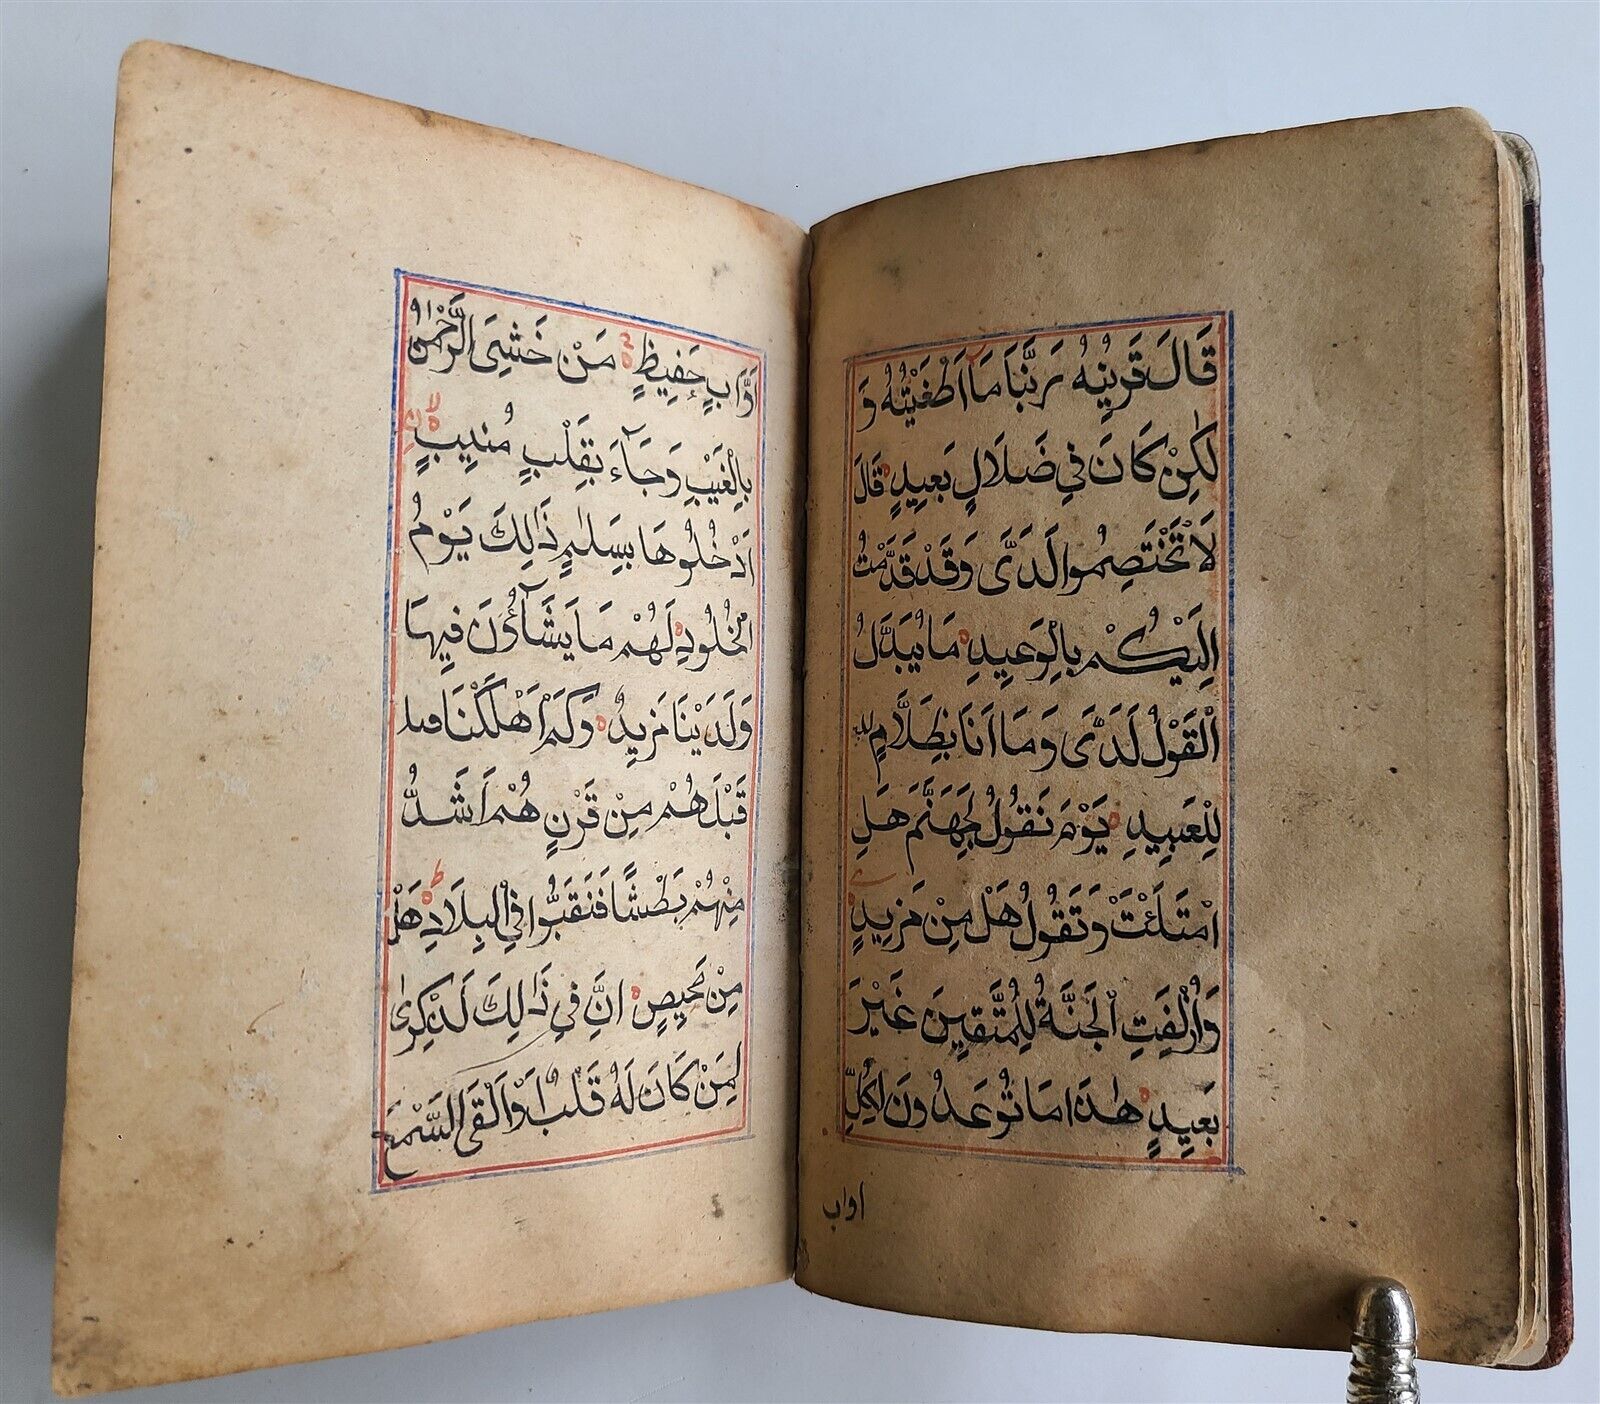 قَالَ قَرِينُهُ رَبَّنَا مَآ اَطْغَيْتُهُ وَ
لٰكِنْ كَانَ فِي ضَلَالٍ بَعِيدٍ قَالَ
لَا تَخْتَصِمُوا لَدَىَّ وَقَدْ قَدَّمْتُ
اِلَيْكُمْ بِالْوَعِيدِ مَا يُبَدَّلُ
الْقَوْلُ لَدَىَّ وَمَا اَنَا بِظَلَّامٍ للع
لِلْعَبِيدِ يَوْمَ نَقُولُ لِجَهَنَّمَ هَلِ
امْتَلَئْتِ وَتَقُولُ هَلْ مِنْ مَزِيدٍ
وَاُزْلِفَتِ الْجَنَّةُ لِلْمُتَّقِينَ غَيْرَ
بَعِيدٍ هٰذَا مَا تُوعَدُونَ لِكُلِّ
اواب
اَوَّابٍ حَفِيظٍ مَنْ خَشِىَ الرَّحْمٰنَ
بِالْغَيْبِ وَجَآءَ بِقَلْبٍ مُنِيبٍ
اُدْخُلُوهَا بِسَلٰمٍ ذٰلِكَ يَوْمُ
الْخُلُودِ لَهُمْ مَا يَشَآؤُنَ فِيهَا
وَلَدَيْنَا مَزِيدٌ وَكَمْ اَهْلَكْنَا قبل
قَبْلَهُمْ مِنْ قَرْنٍ هُمْ اَشَدُّ
مِنْهُمْ بَطْشًا فَنَقَّبُوا فِي الْبِلَادِ هَلْ
مِنْ مَحِيصٍ اِنَّ فِي ذٰلِكَ لَذِكْرٰى
لِمَنْ كَانَ لَهُ قَلْبٌ اَوْ اَلْقَى السَّمْعَ